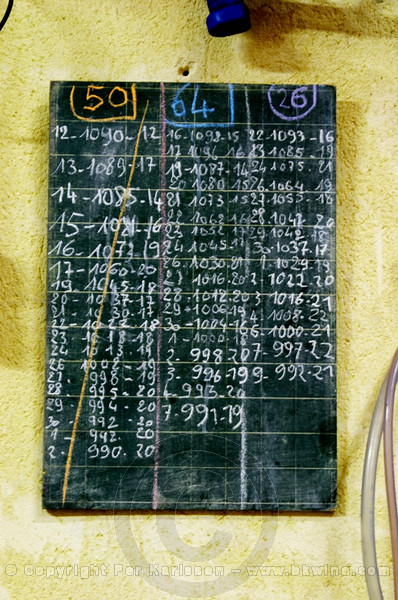 50 64 26
12-1090-12 16-1092-15 22-1093-16
13-1089-17 17 1091 16 23 1085-19
14-1085-14 19-1087-14 24 1075-21
15-1021-16 20 1080 15 26 1064 19
16-1073 19 21 1073 15 27 1055-18
17-1060-20 22 1062 16 28 1042 20
19 1045-18 23 1052 17 29 1042-18
20-1037-17 24 1045 17 30-1037-17
21 1030-17 26 1030 21 1-1029 19
22-1022-18 27 1016 20 2 1022-20
23 1018-18 28 1012 20 3 1016-21
24 1013-19 29 1006 19 4 1008-22
26 1006-19 30-1004 16 6-1000-21
27 998-19 1-1000-18 7-997-22
28 995-20 2-998 20 9-992-21
29 994-20 3-996 19
30-992-20 6-993-20
1-992-20 7-991-19
2-990-20
© Copyright Per Karlsson - www.bkwine.com